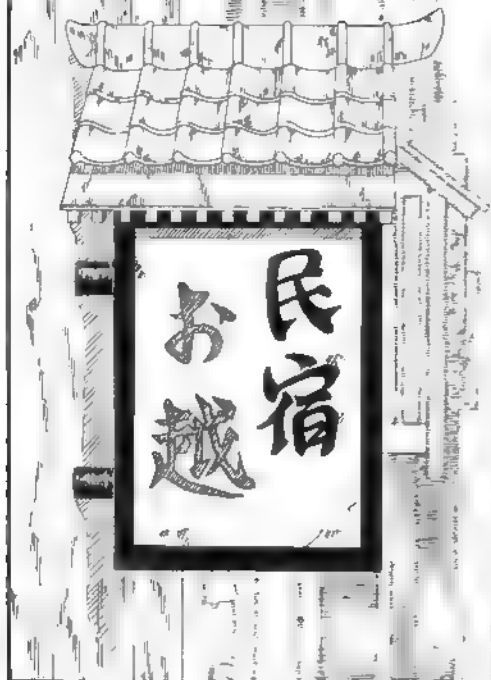 民宿
お越